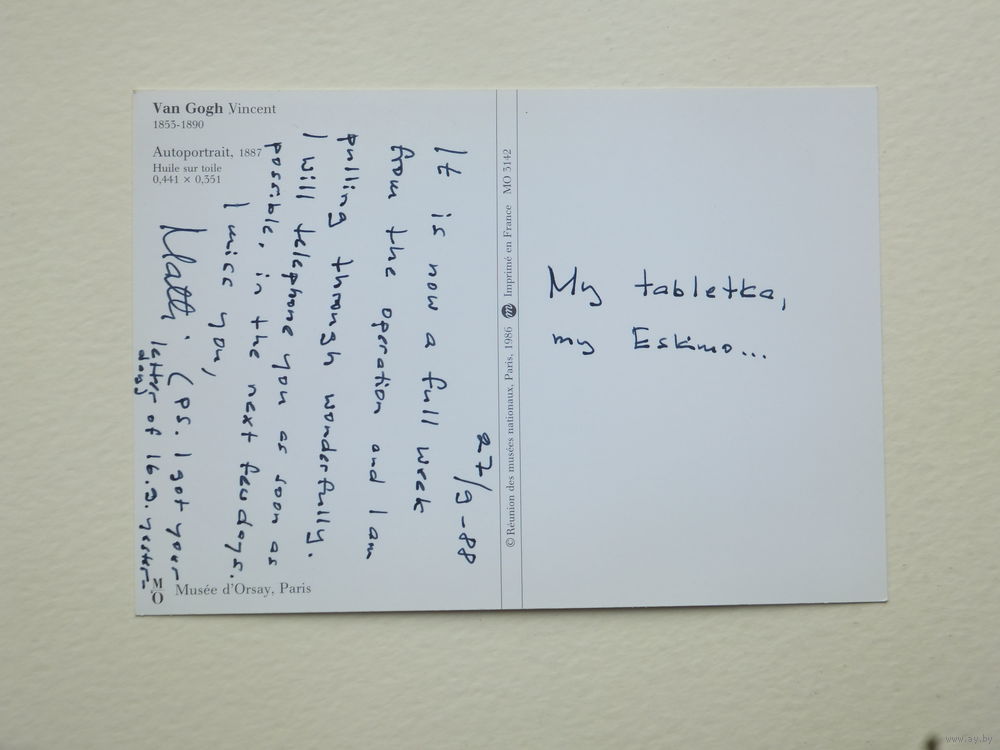 Van Gogh Vincent
1853-1890
Autoportrait, 1887
Huile sur toile
0,441 × 0,351
27/9-88
It is now a full week
from the operation and I am
pulling through wonderfully.
I will telephone you as soon as
possible, in the next few days.
I miss you,
Matti. (PS. I got your
letter of 16.9. yester-
day)
MO Musée d'Orsay, Paris
© Réunion des musées nationaux, Paris, 1986 m Imprimé en France MO 3142
My tabletka,
my Eskimo...
www.ay.by